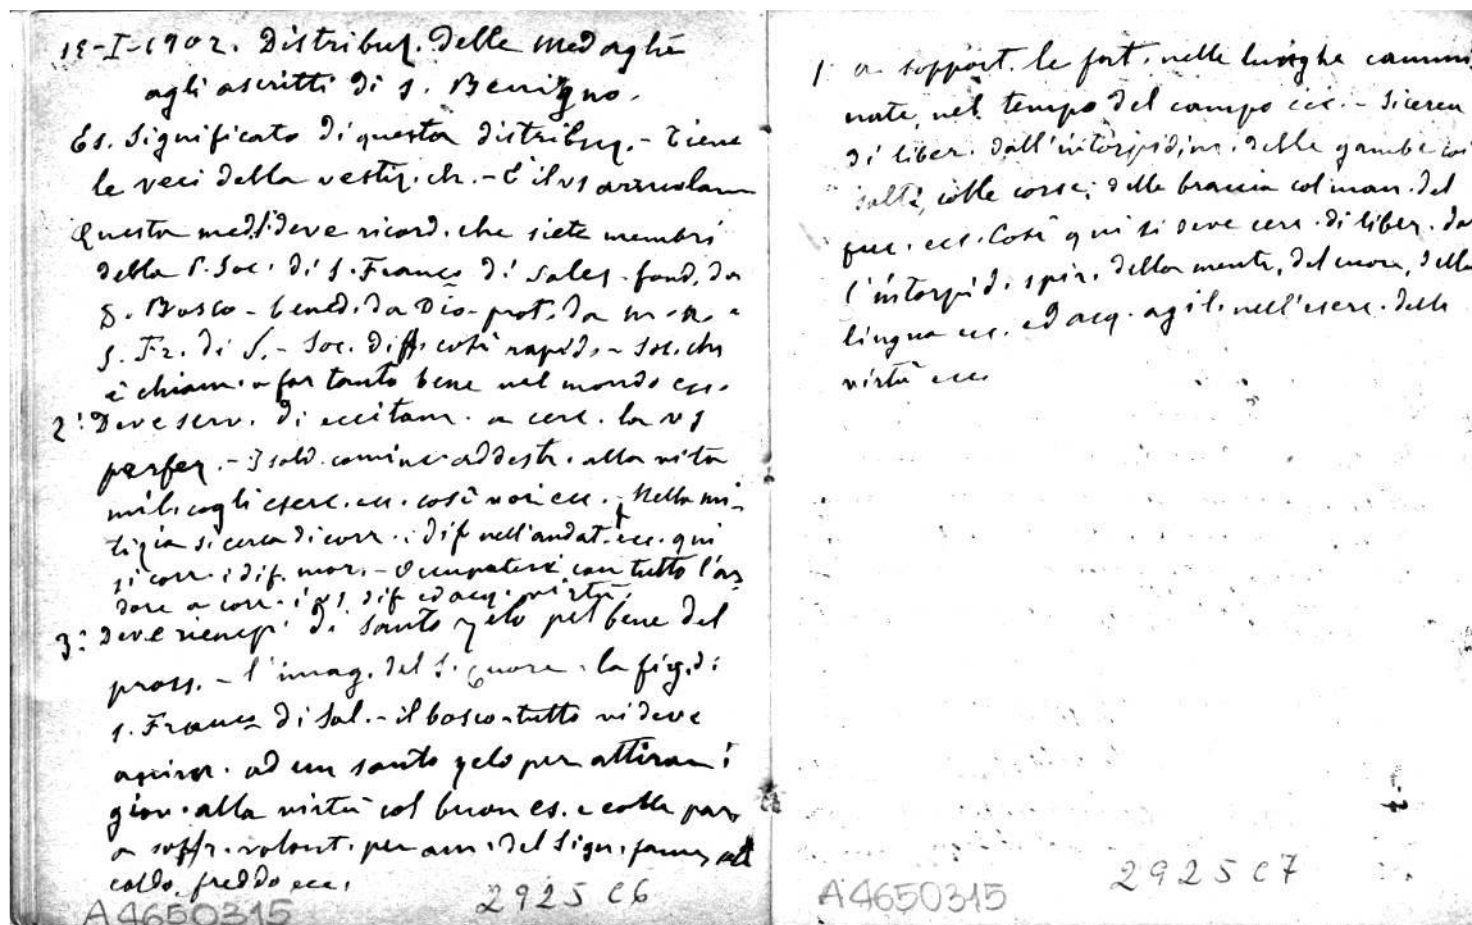 -I-1902. Distribuz. delle medaglie
agli ascritti di S. Benigno.
Es. Significato di questa distribuz. - Tiene
le veci della vestiz. ch. - È il vs arruolam
Questa med. deve ricord. che siete membri
della P. Soc. di S. Franco di Sales - fond. da
D. Bosco - bened. da Dio - prot. da M. A. e
S. Fr. di S. - Soc. diff. così rapid. - Soc. che
è chiam. a far tanto bene nel mondo ecc.
2: Deve serv. di eccitam. a cerc. la vs
perfez. - I sold. cominc. addestr. alla vita
mil. cogli eserc. ecc. così voi ecc. - Nella mi-
lizia si cerca di corr. i dif nell'andat. ecc. qui
si corr. i dif. mor. - Occupatevi con tutto l'ar
dore a corr. i vs dif ed acq. virtù.
3: Deve riempi di santo zelo pel bene del
pross. - l'imag. del S. Cuore. la fig. di
S. Franco di Sal. - il bosco - tutto vi deve
ad un santo zelo per attirar i
giov. alla virtù col buon es. e colle par
a soffr. volent. per am. del Sign. fame,
caldo, freddo ecc.
2925 C6
A4650315
a support. le fort. nelle lunghe cammi
nate, nel tempo del campo ecc. - Si cerca
di liber. dall'intorpidim. delle gambe coi
salti, colle corse; delle braccia col man. del
fuc. ecc. Così qui si deve cerc. di liber. da
l'intorpid. spir. della mente, del cuore, della
lingua ecc. ed acq. agil. nell'eserc. delle
virtù ecc.
2925 C7
A4650315